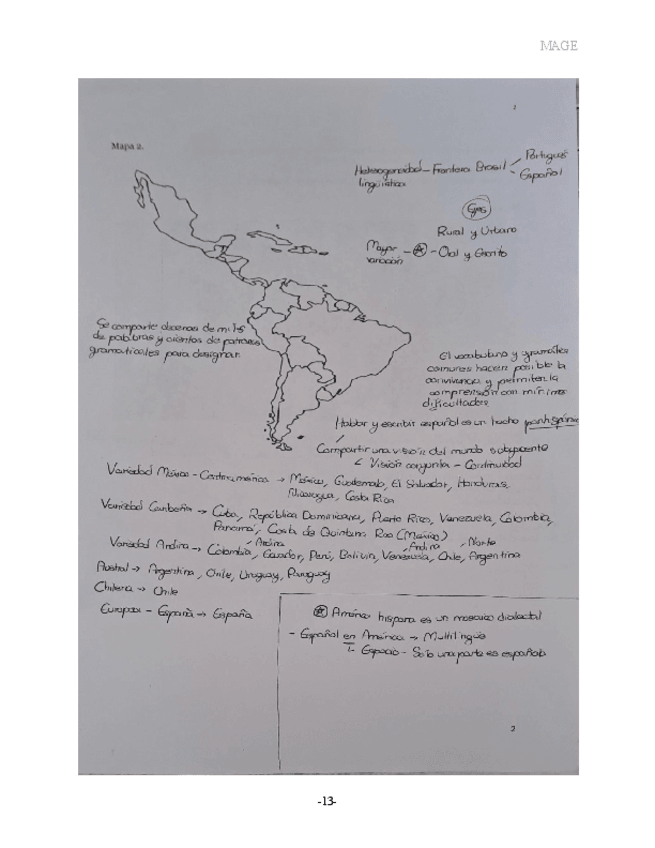 MAGE
1
Mapa 2.
Heterogeneidad - Frontera Brasil - Portugués
lingüística - Español
Ejes
Rural y Urbano
Mayor - * - Oral y Escrito
variación
Se comparte decenas de miles
de palabras y cientos de patrones
gramaticales para designar
El vocabulario y gramática
comunes hacen posible la
convivencia y permiten la
comprensión con mínimas
dificultades
Hablar y escribir español es un hecho panhispánic
Compartir una visión del mundo subyacente
Visión conjunta - Continuidad
Variedad México - Centroamérica → México, Guatemala, El Salvador, Honduras,
Nicaragua, Costa Rica
Variedad Caribeña → Cuba, República Dominicana, Puerto Rico, Venezuela, Colombia,
Panamá, Costa de Quintana Roo (México)
Andina Andina Norte
Variedad Andina → Colombia, Ecuador, Perú, Bolivia, Venezuela, Chile, Argentina
Austral → Argentina, Chile, Uruguay, Paraguay
Chilena → Chile
Europea - España → España
* América hispana es un mosaico dialectal
- Español en América → Multilingüe
Espacio - Solo una parte es española
2
-13-